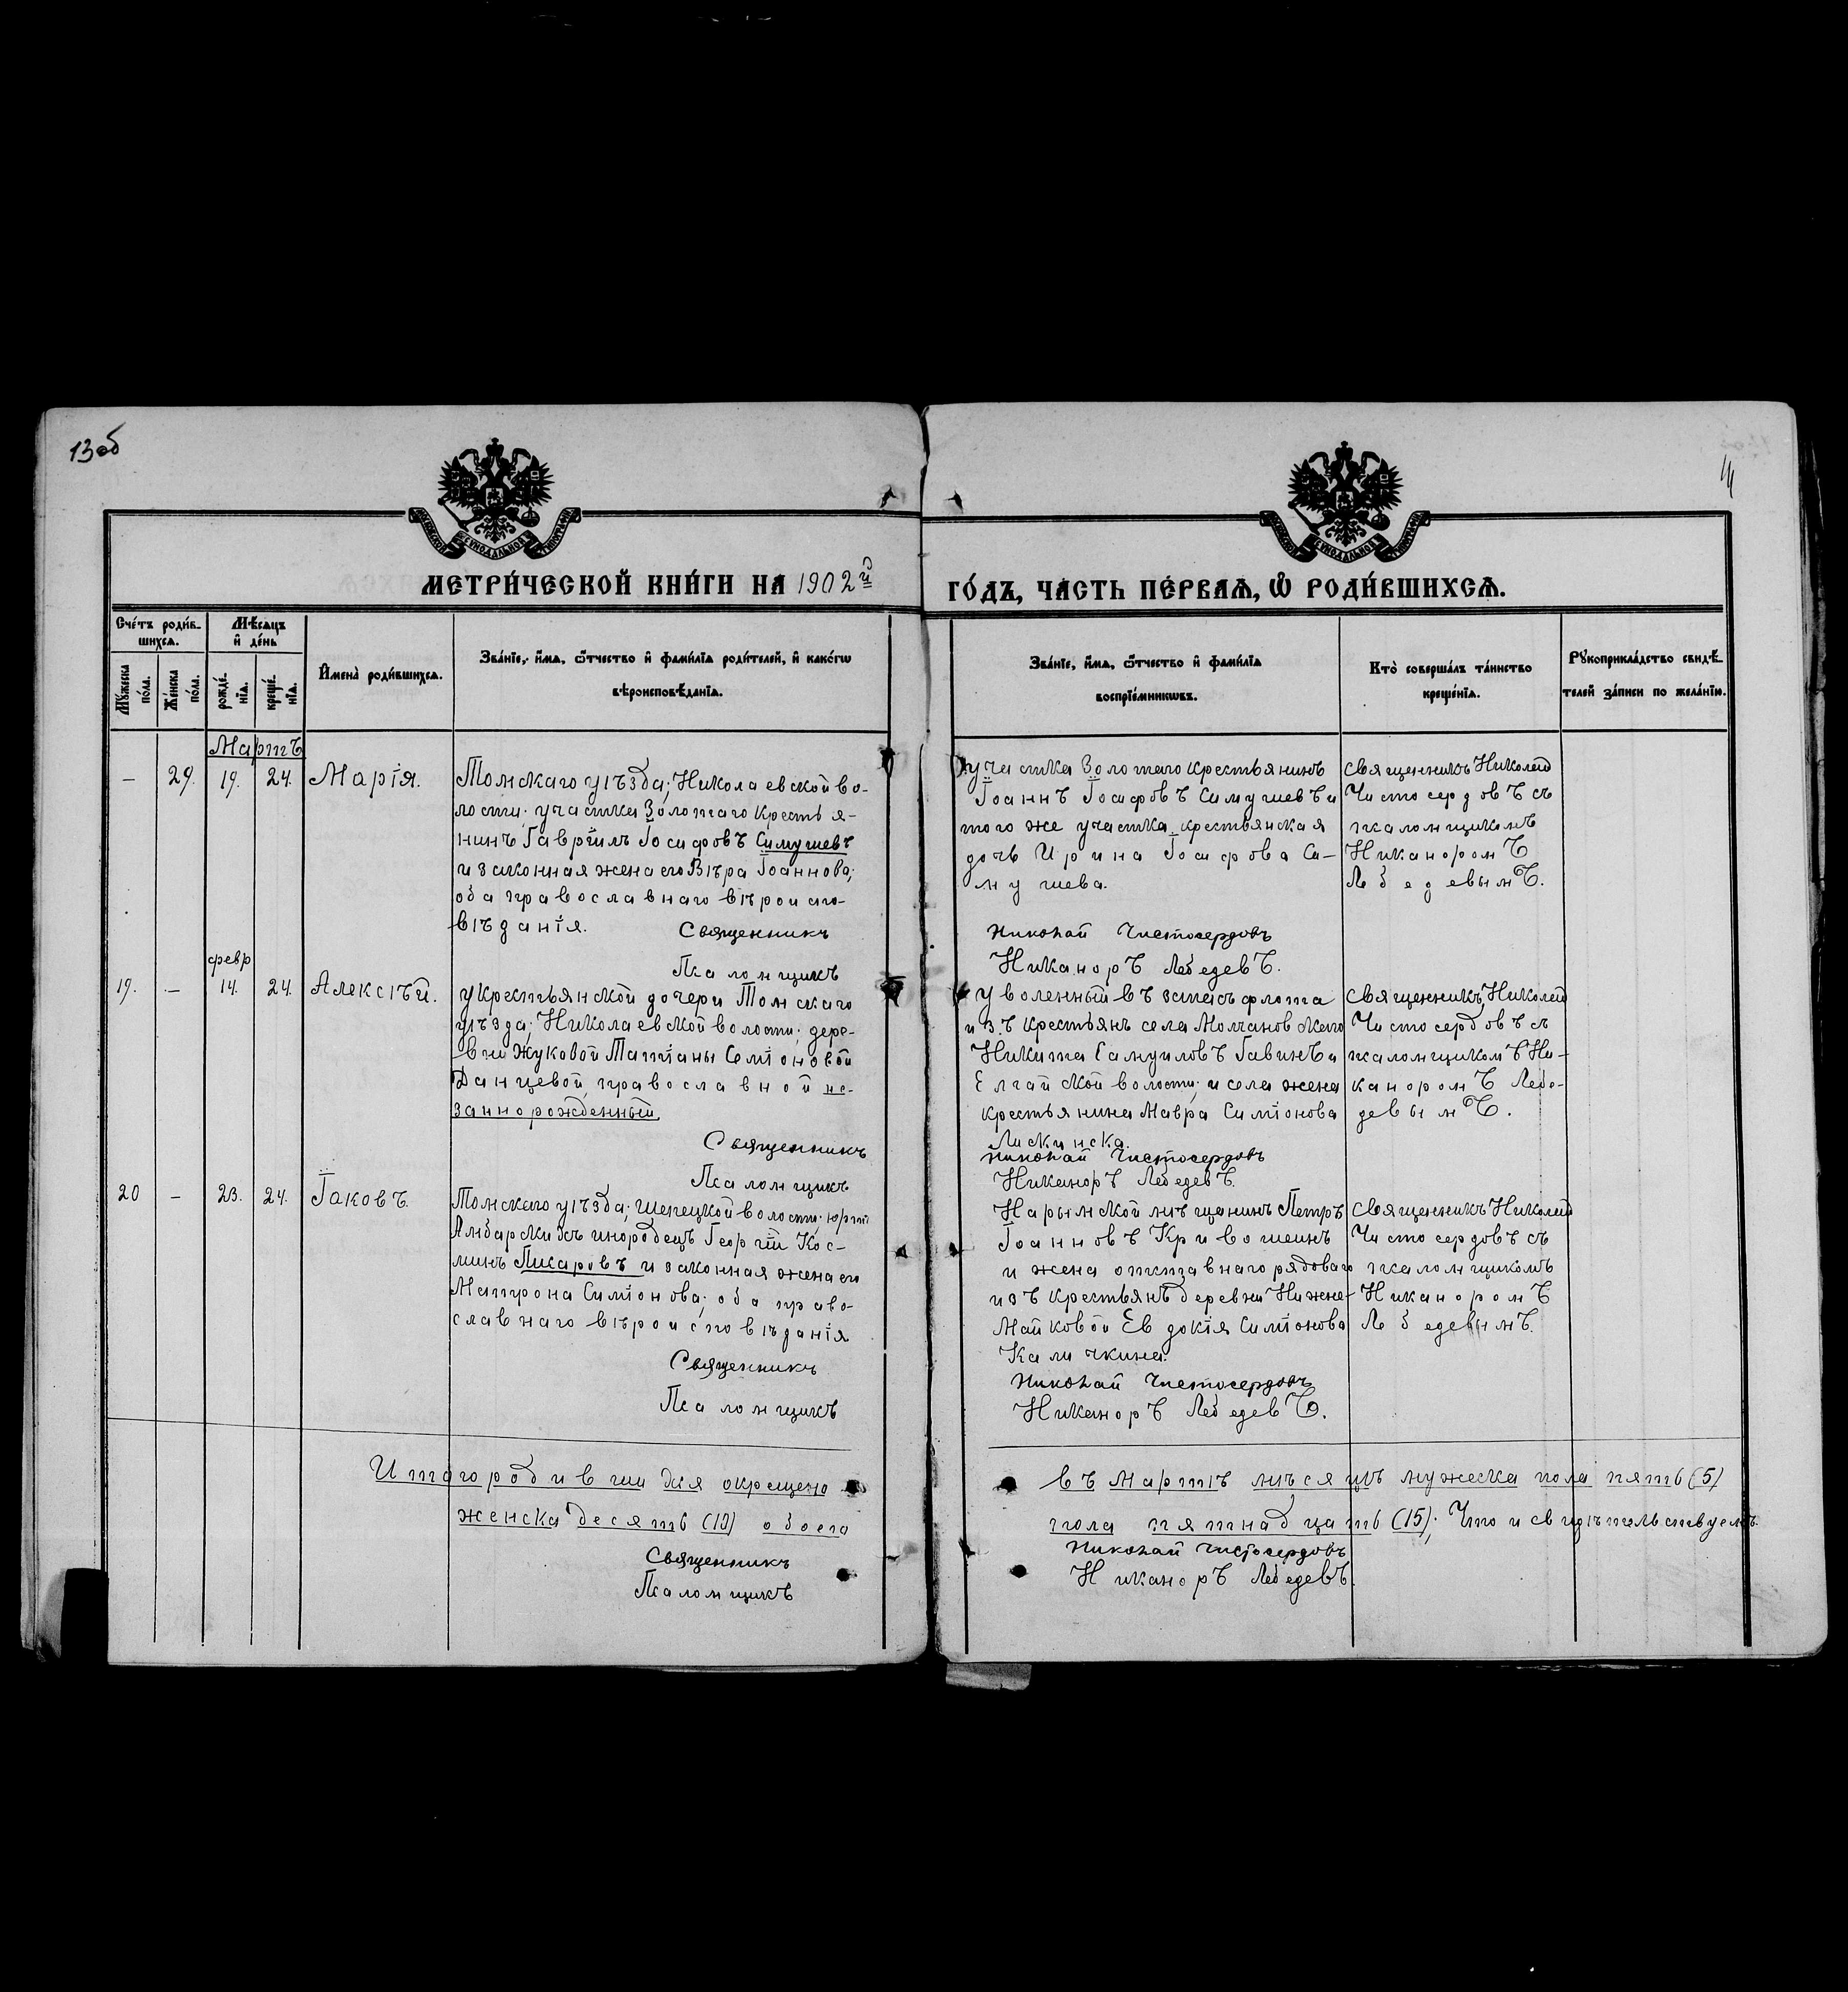 13об
14
МЕТРИ́ЧЕСКОЙ КНИ́ГИ НА 1902й
ГО́ДЪ, ЧАСТЬ ПЕ́РВАѦ, Ѡ РОДИ́ВШИХСѦ.
Сче́тъ роди́в-
шихсѧ.
Мѣ́сѧцъ
и҆ де́нь
Мꙋ́жеска
по́ла.
Же́нска
по́ла.
рожде́-
нїѧ.
креще́-
нїѧ.
И҆мена̀ роди́вшихсѧ.
Зва́нїе, и҆́мѧ, ѻ҆́тчество и҆ фами́лїѧ роди́телей, и҆ како́гѡ
вѣроисповѣ́данїѧ.
Зва́нїе, и҆́мѧ, ѻ҆́тчество и҆ фами́лїѧ
воспрїе́мникѡвъ.
Кто̀ соверша́лъ та́инство
креще́нїѧ.
Рꙋкоприкла́дство свидѣ́-
телей за́писи по жела́нїю.
Мартъ
— 29. 19. 24. Марія.
Томскаго уѣзда; Николаевской во-
лости; участка Золотаго крестья-
нинъ Гавріилъ Іосифовъ Симушевъ
и законная жена его Вѣра Іоаннова;
оба православнаго вѣроиспо-
вѣданія.
Священникъ
Псаломщикъ
участка Золотаго крестьянинъ
Іоаннъ Іосифовъ Симушевъ и
того же участка крестьянская
дочь Ирина Іосифова Си-
мушева.
Николай Чистосердовъ
Никаноръ Лебедевъ.
Священникъ Николай
Чистосердовъ съ
псаломщикомъ
Никаноромъ
Лебедевымъ.
февр
19. — 14. 24. Алексѣй.
У крестьянской дочери Томскаго
уѣзда; Николаевской волости; дере-
вни Жуковой Татіаны Семіоновой
Данцевой, православной не-
заннорожденный
Священникъ
Псаломщикъ
Уволенный въ запасъ флота
изъ крестьянъ села Молчановскаго
Никита Самуиловъ Гавинъ и
Елгайской волости; и села жена
крестьянина Мавра Симіонова
Лискинска.
Николай Чистосердовъ
Никаноръ Лебедевъ.
Священникъ Николай
Чистосердовъ съ
псаломщикомъ Ни-
каноромъ Лебе-
девымъ.
20 — 23. 24. Іаковъ.
Томскаго уѣзда; Шепецкой волости; юртъ
Амбарскихъ инородецъ Георгій Кос-
минъ Пикаровъ и законная жена его
Матрона Симіонова; оба право-
славнаго вѣроисповѣданія
Священникъ
Псаломщикъ
Нарымской мѣщанинъ Петръ
Іоанновъ Кривошеинъ
и жена отставнаго рядоваго
изъ крестьянъ деревни Нижне-
Майковой Евдокія Симіонова
Каличкина.
Николай Чистосердовъ
Никаноръ Лебедевъ.
Священникъ Николай
Чистосердовъ съ
псаломщикомъ
Никаноромъ
Лебедевымъ.
Итаго родившихся окрещено
въ Мартѣ мѣсяцѣ мужеска пола пять (5)
женска десять (10) обоего
пола пятнадцать (15); Что и свидѣтельствуемъ.
Священникъ
Николай Чистосердовъ
Псаломщикъ
Никаноръ Лебедевъ.